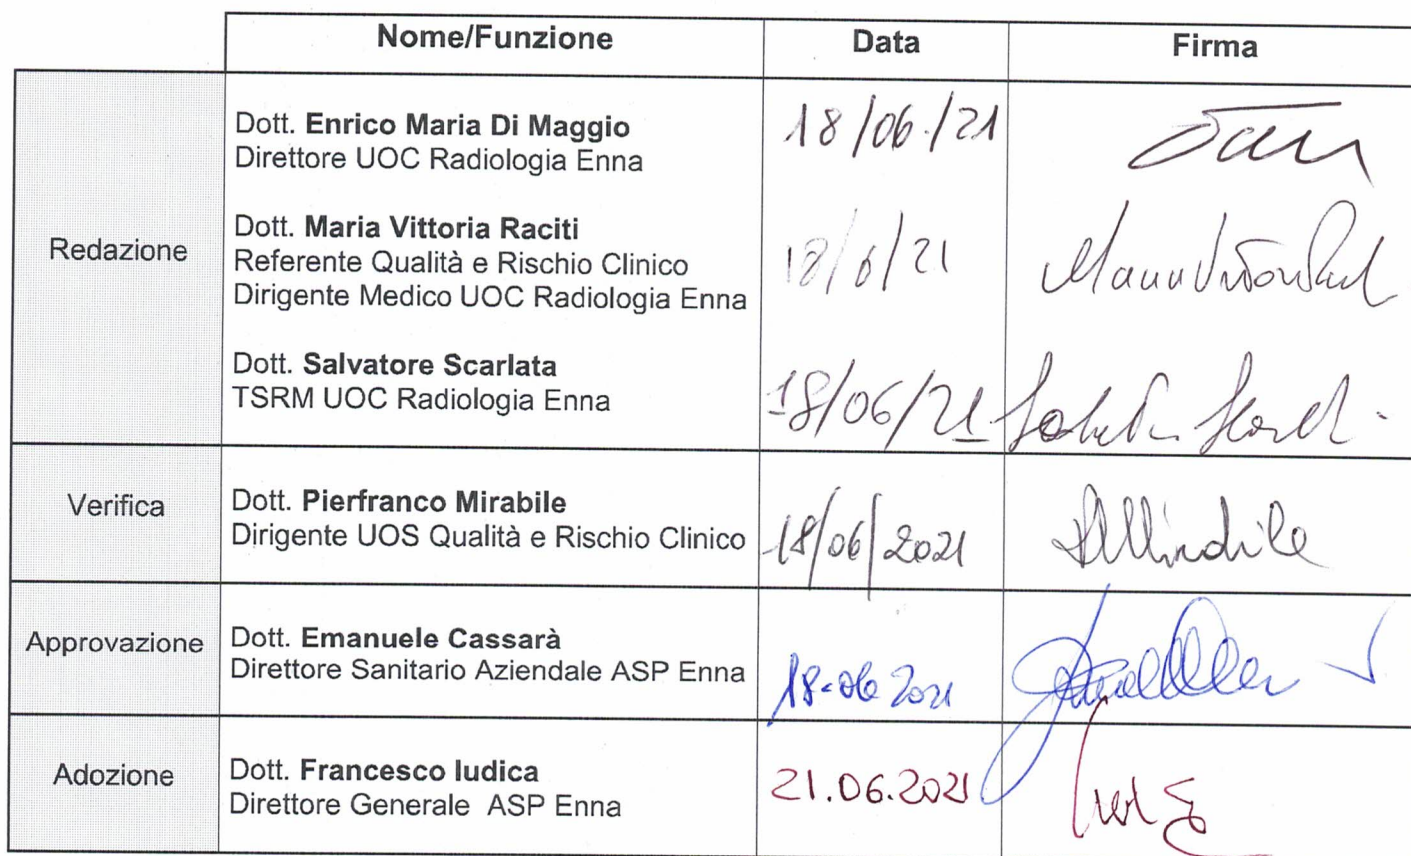 Nome/Funzione Data Firma
Redazione
Dott. Enrico Maria Di Maggio 18/06/21
Direttore UOC Radiologia Enna
Dott. Maria Vittoria Raciti
Referente Qualità e Rischio Clinico 18/6/21
Dirigente Medico UOC Radiologia Enna
Dott. Salvatore Scarlata
TSRM UOC Radiologia Enna 18/06/21
Verifica
Dott. Pierfranco Mirabile
Dirigente UOS Qualità e Rischio Clinico 18/06/2021
Approvazione
Dott. Emanuele Cassarà
Direttore Sanitario Aziendale ASP Enna 18-06 2021
Adozione
Dott. Francesco Iudica 21.06.2021
Direttore Generale ASP Enna